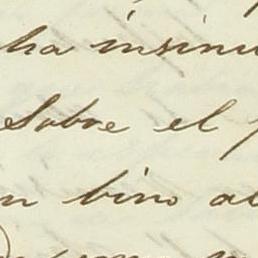 ha insinu
Sobre el p
n bino al